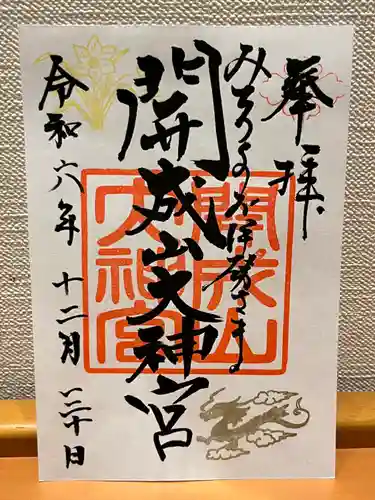 奉拝
みちのくのお伊勢さま
開成山大神宮
令和六年十二月三十日
開成山大神宮